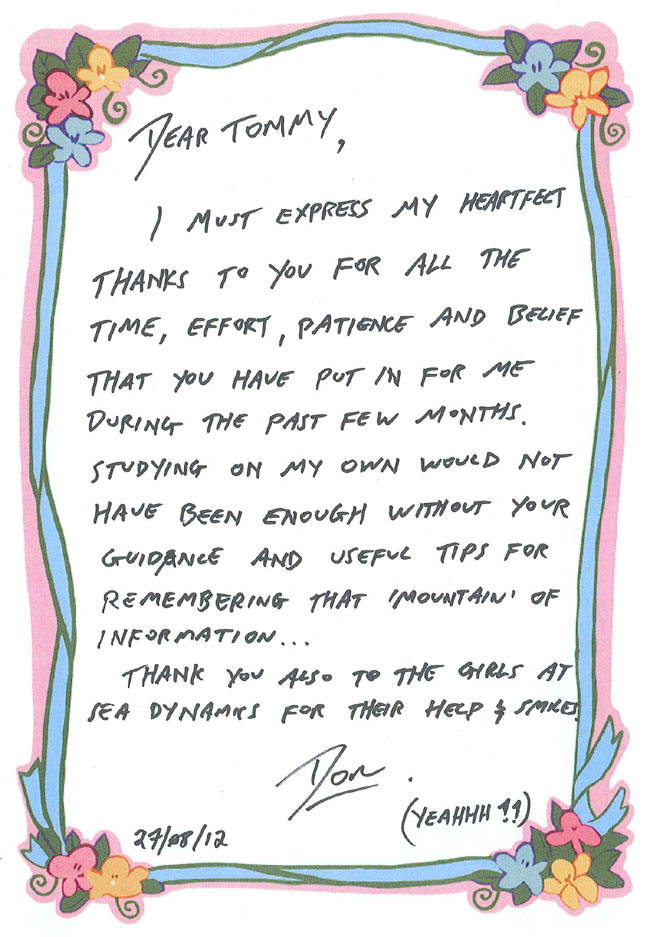 DEAR TOMMY,
I MUST EXPRESS MY HEARTFECT
THANKS TO YOU FOR ALL THE
TIME, EFFORT, PATIENCE AND BELIEF
THAT YOU HAVE PUT IN FOR ME
DURING THE PAST FEW MONTHS.
STUDYING ON MY OWN WOULD NOT
HAVE BEEN ENOUGH WITHOUT YOUR
GUIDANCE AND USEFUL TIPS FOR
REMEMBERING THAT 'MOUNTAIN' OF
INFORMATION...
THANK YOU ALSO TO THE GIRLS AT
SEA DYNAMICS FOR THEIR HELP & SMILES.
Don.
(YEAHHH !!)
27/08/12